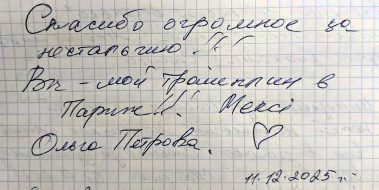 Спасибо огромное за
ностальгию!!!
Вы - мой трамплин в
Париж!!! Мерсі
Ольга Петрова.
11.12.2025 г.